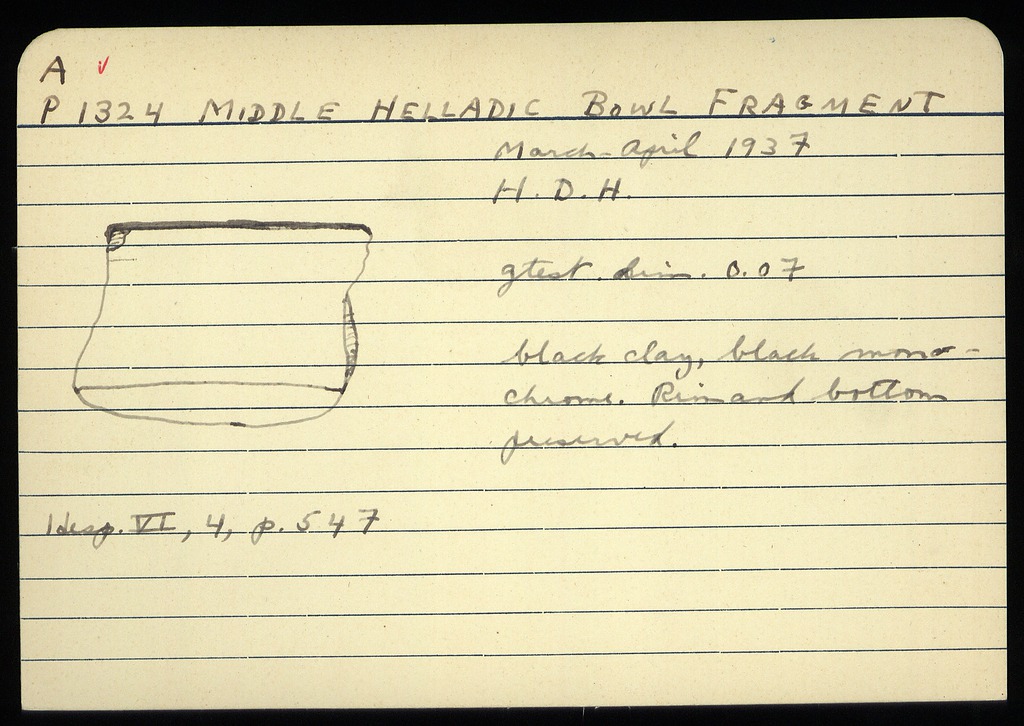 A
P 1324 MIDDLE HELLADIC BOWL FRAGMENT
March-April 1937
H. D. H.
gtest. dim. 0.07
black clay, black mono-
chrome. Rim and bottom
preserved.
Hesp. VI, 4, p. 547